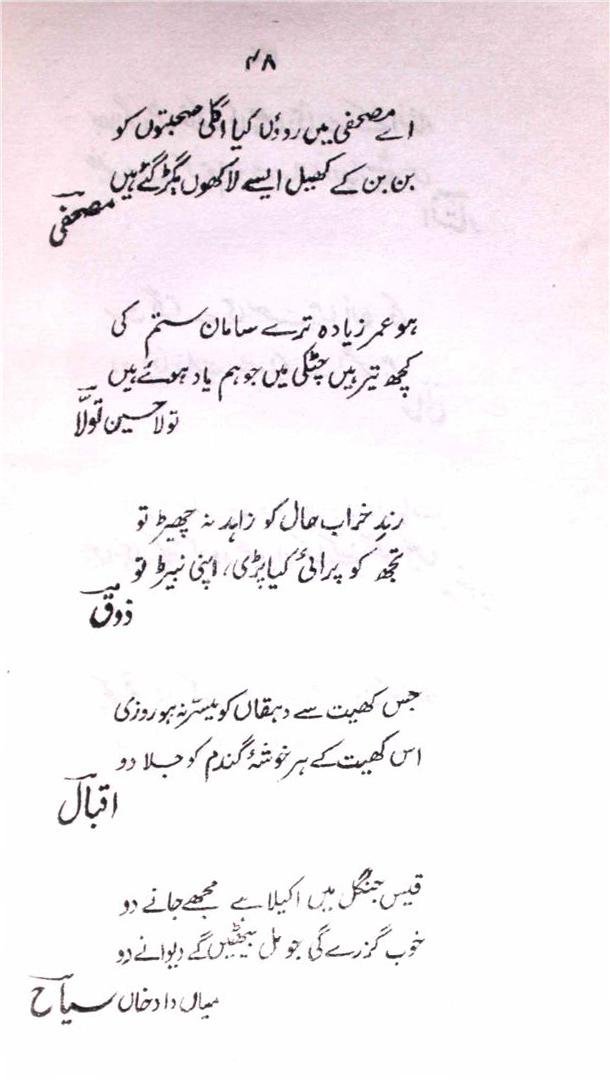 ۴۸
اے مصحفی میں روؤں کیا اگلی صحبتوں کو
بن بن کے کھیل ایسے لاکھوں بگڑ گئے ہیں
مصحفی
ہو عمر زیادہ ترے سامان ستم کی
کچھ تیر ہیں چٹکی میں جو ہم یاد ہوئے ہیں
تولا حسین تولّا
رندِ خراب حال کو زاہد نہ چھیڑ تو
تجھ کو پرائی کیا پڑی، اپنی نبیڑ تو
ذوق
جس کھیت سے دہقاں کو میسّر نہ ہو روزی
اس کھیت کے ہر خوشۂ گندم کو جلا دو
اقبال
قیس جنگل میں اکیلا ہے مجھے جانے دو
خوب گزرے گی جو مل بیٹھیں گے دیوانے دو
میاں داد خاں سیاح